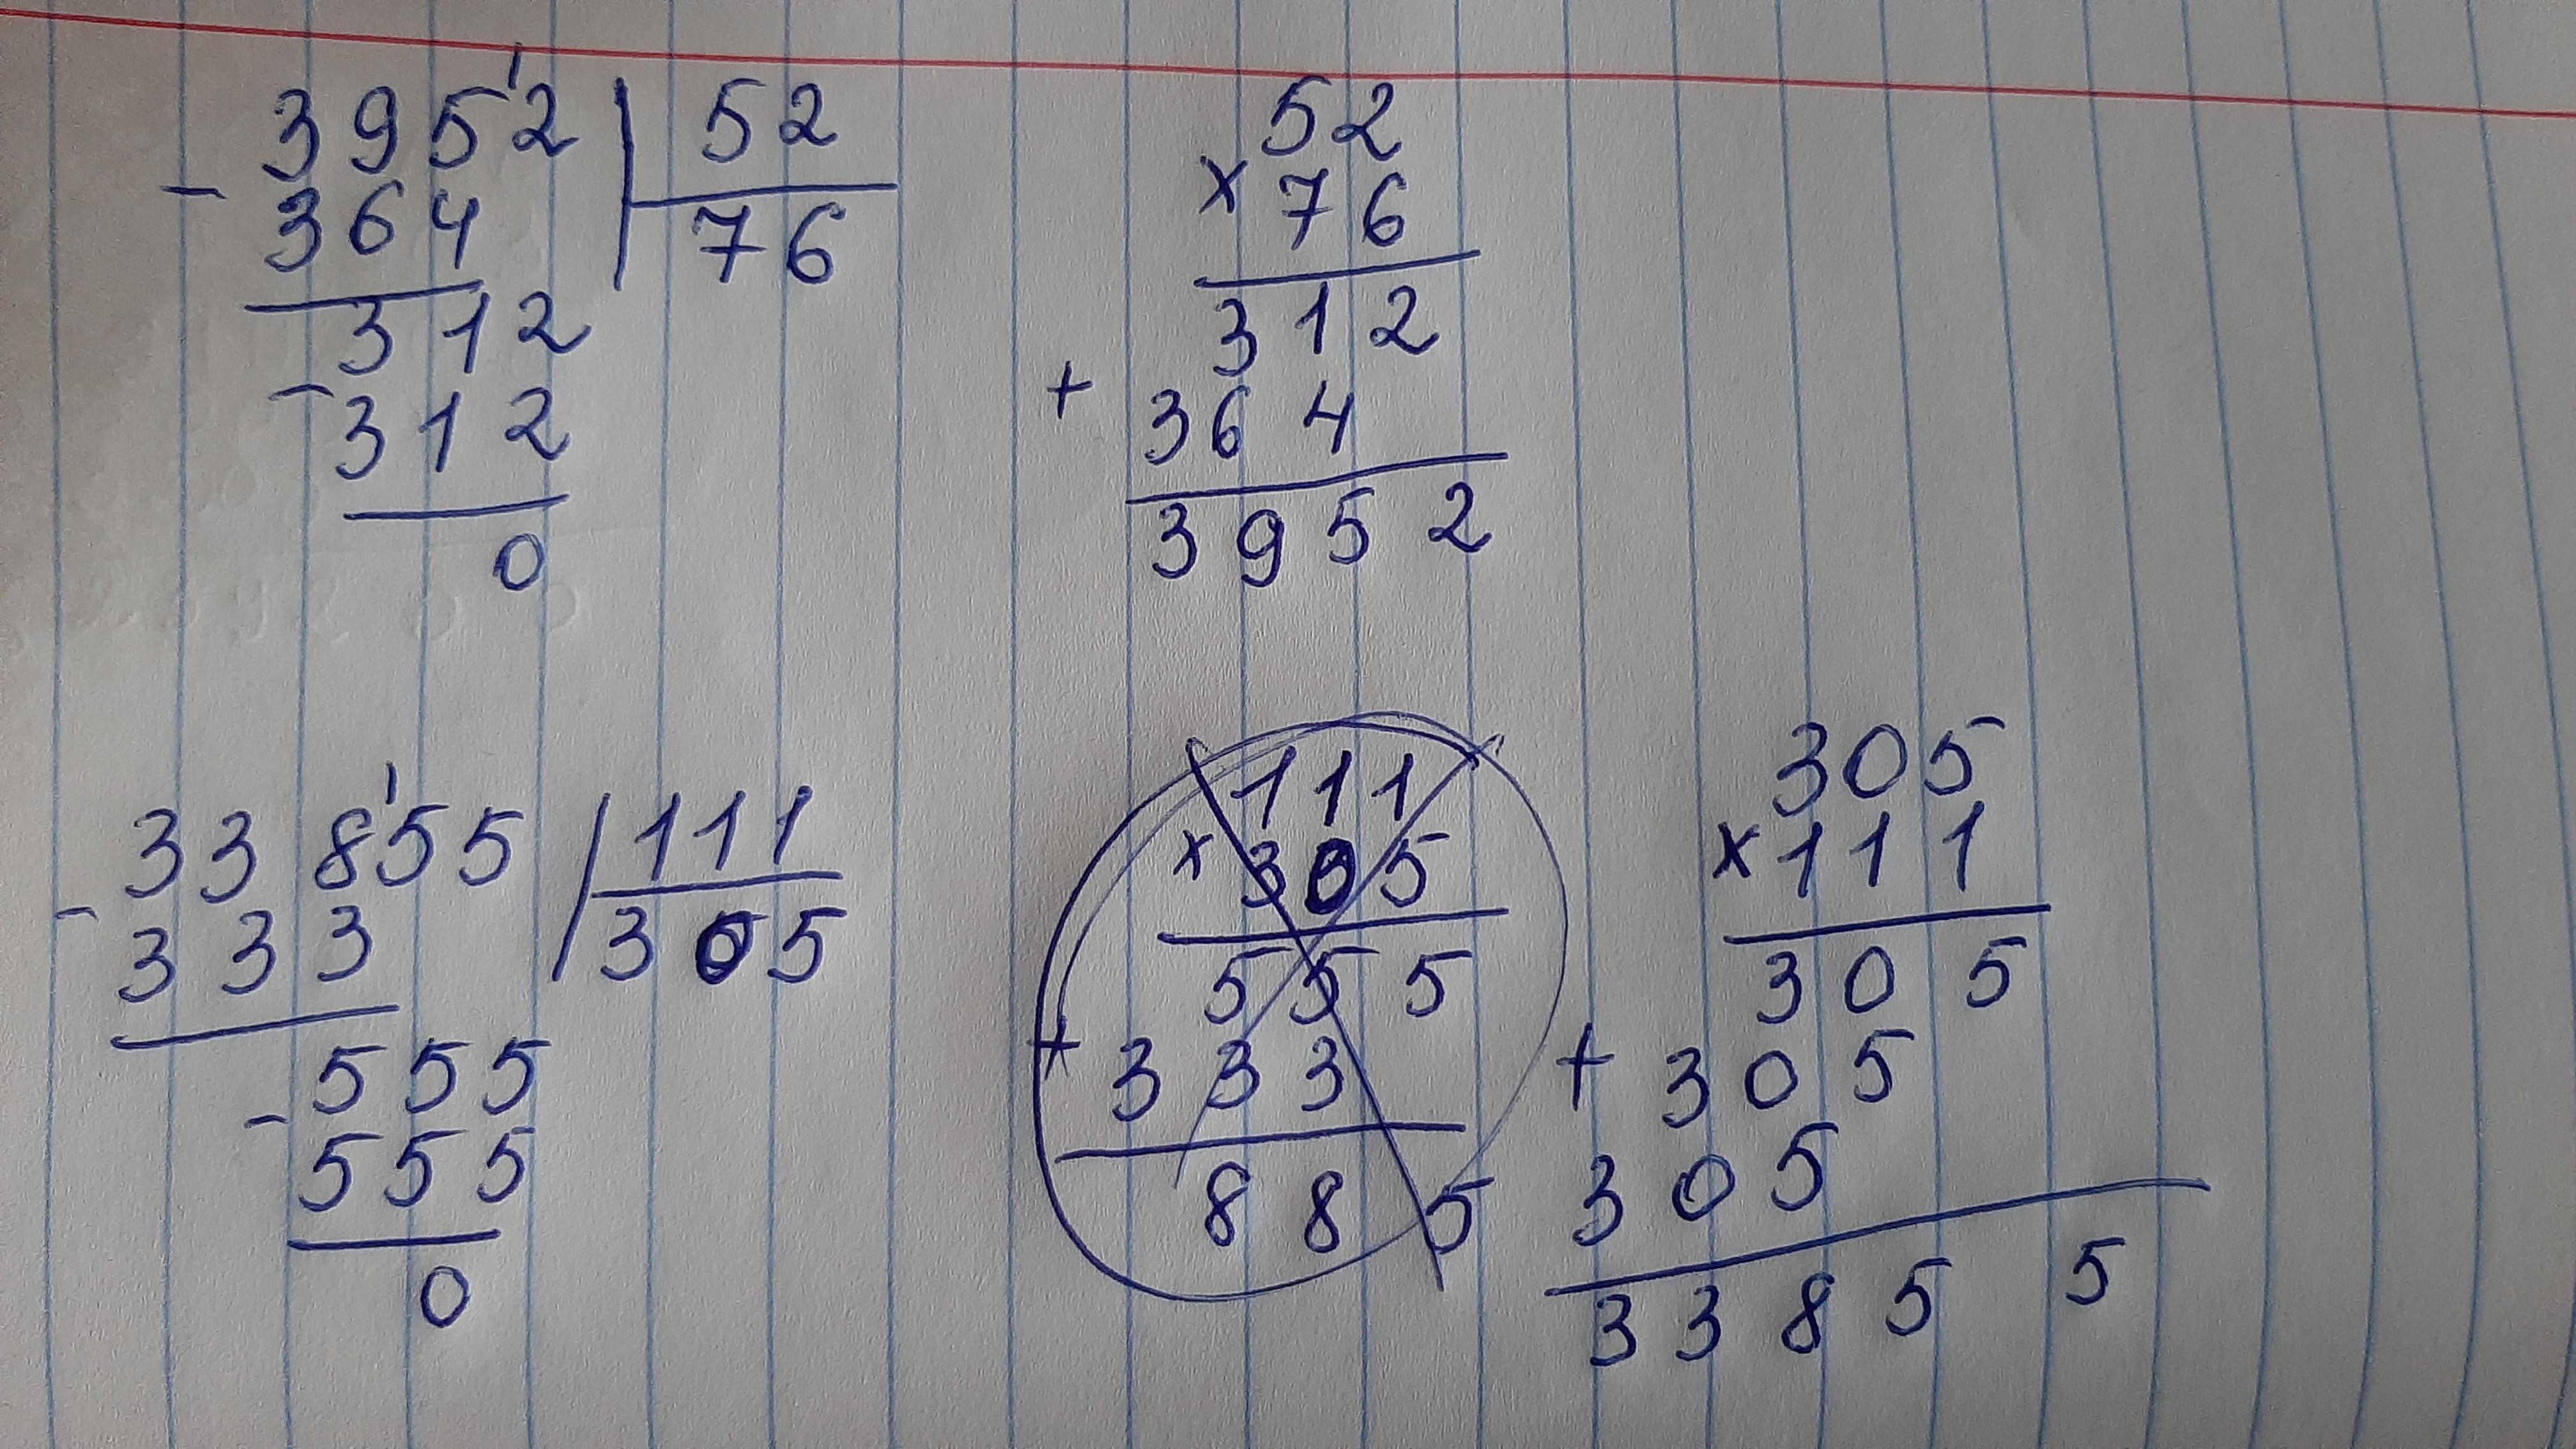 3952 | 52
- 364 | 76
312
- 312
0
52
× 76
312
+ 364
3952
33855 | 111
- 333 | 305
555
- 555
0
111
× 305
555
+ 333
885
305
× 111
305
+ 305
305
33855